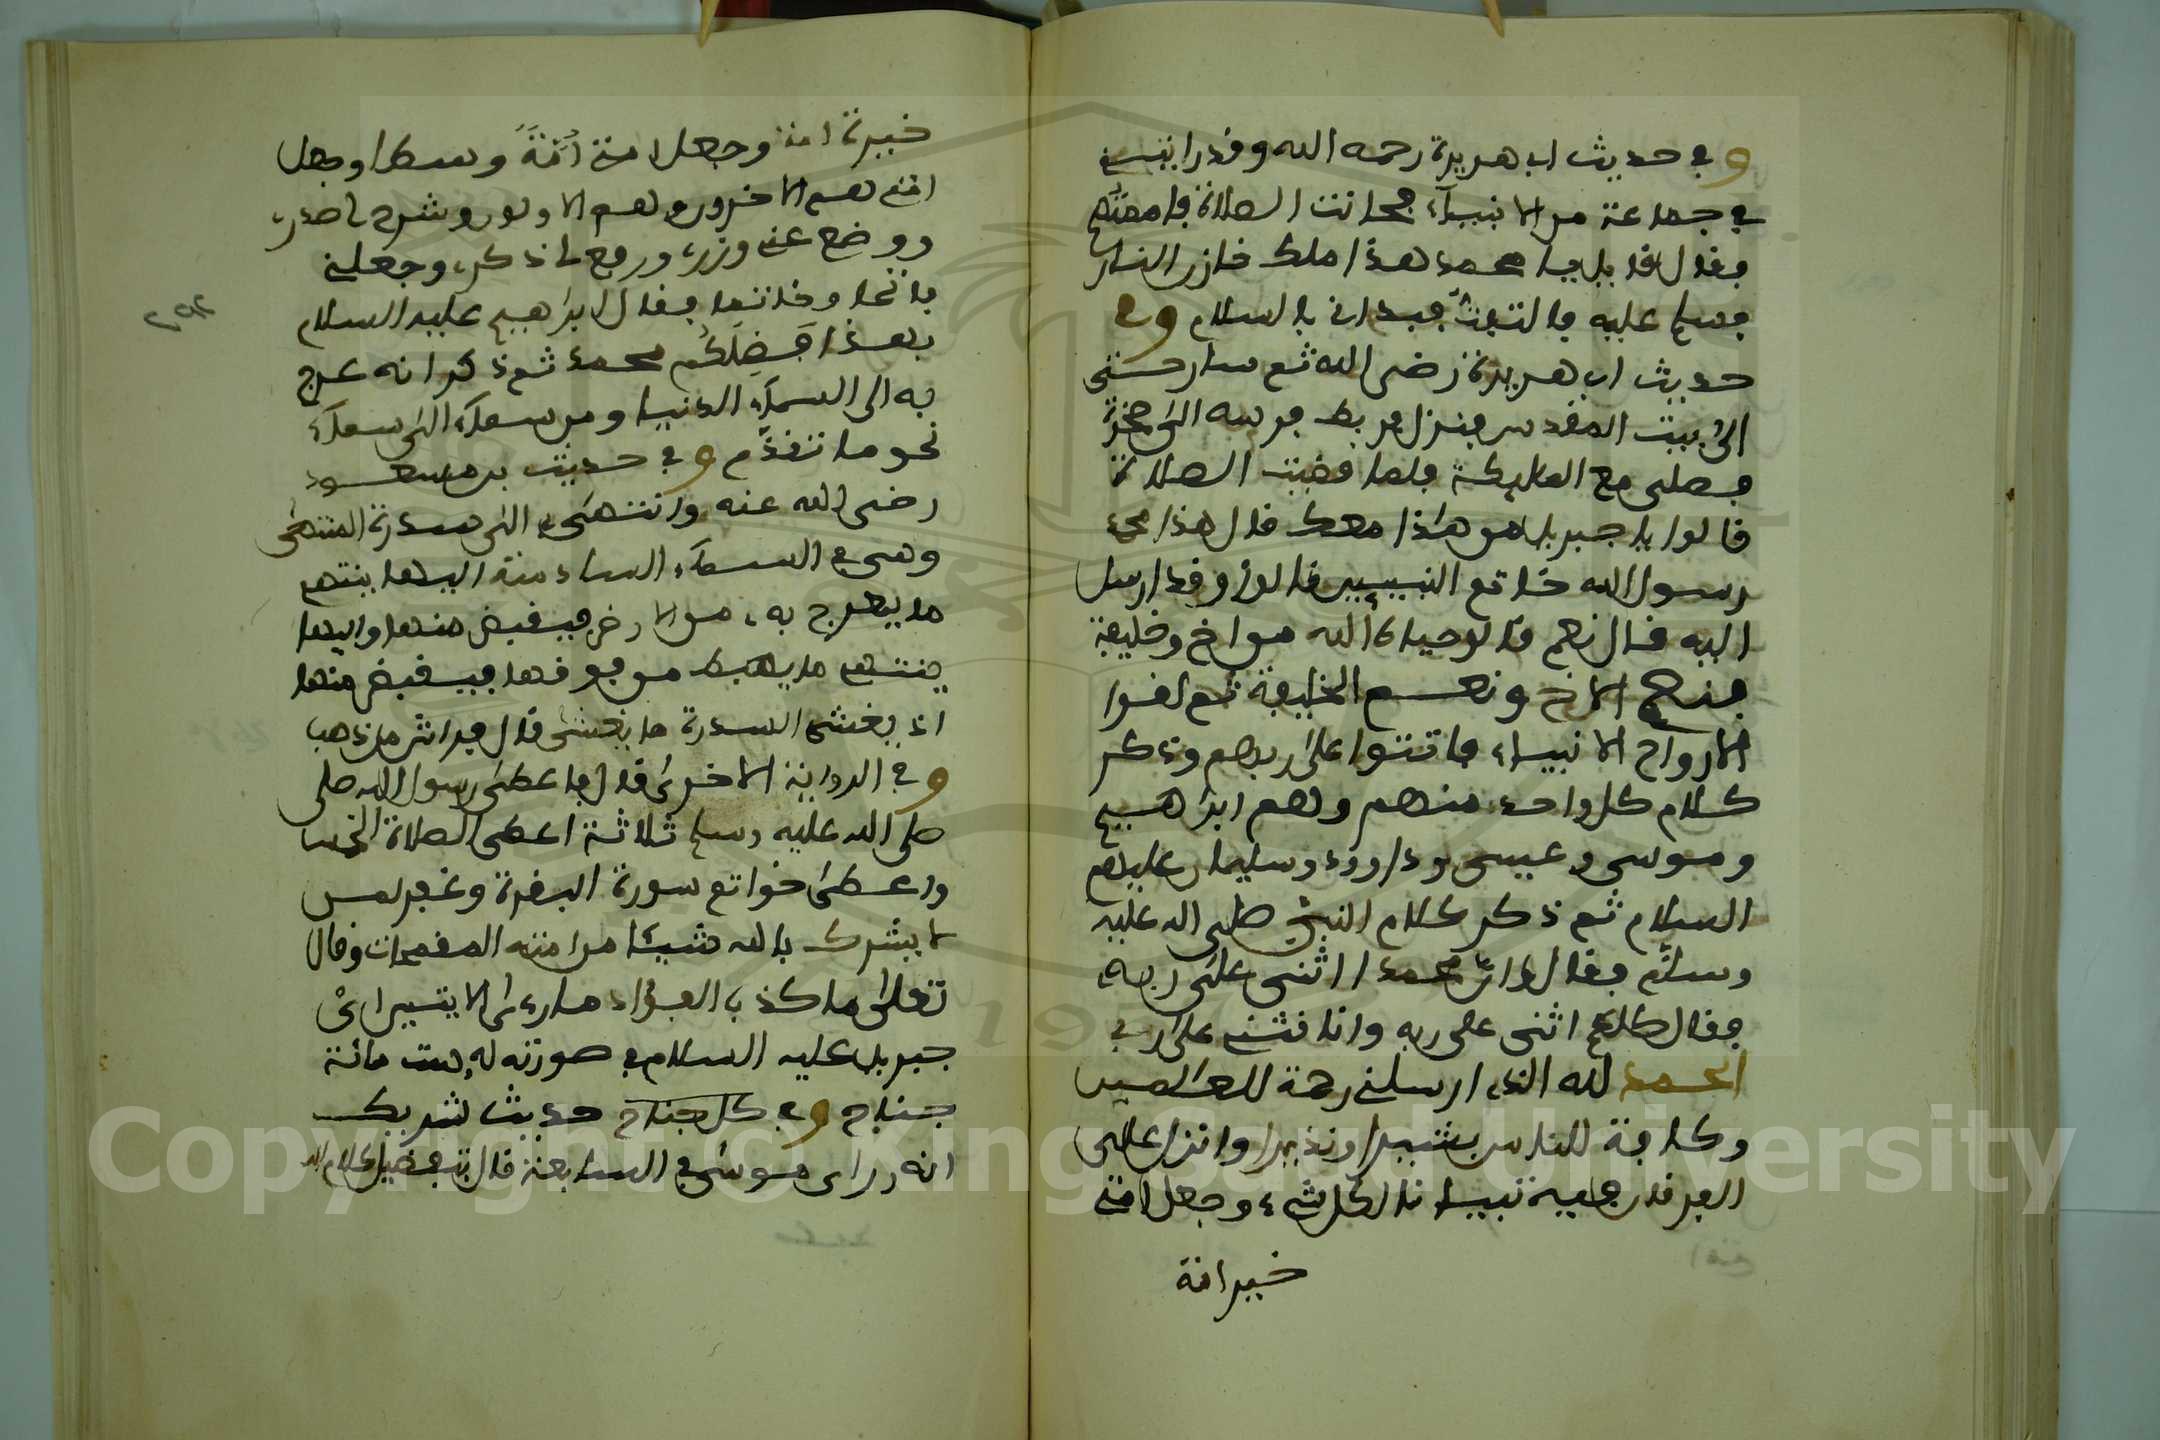 وفي حديث ابي هريرة رحمه الله وقد رايتني
في جماعة من الانبياء فحانت الصلاة فاممتهم
فقال قايل يا محمد هذا ملك خازن النار
فسلم عليه فالتفتّ فبداني بالسلام وفي
حديث ابي هريرة رضي الله ثم سار حتى
الى بيت المقدس فنزل فربط فرسه الى صخرة
فصلى مع الملئكة فلما قضيت الصلاة
قالوا يا جبريل من هذا معك قال هذا محمد
رسول الله خاتم النبيين قالوا وقد ارسل
اليه قال نعم قالو حياه الله من اخ وخليفة
فنعم الاخ ونعم الخليفة ثم لقوا
الارواح الانبياء فاثنوا على ربهم وذكر
كلام كل واحد منهم وهم ابراهيم
وموسى وعيسى وداوود وسليمان عليهم
السلام ثم ذكر كلام النبي صلى الله عليه
وسلم فقال وان محمدا اثنى على ربه
فقال كلكم اثنى على ربه وانا مثني على ربي
الحمد لله الذي ارسلني رحمة للعالمين
وكافة للناس بشيرا ونذيرا وانزل علي
الفرقان فيه تبيانا لكل شيء وجعل امتي
خير امة
خيرة امة وجعل امتي اُمّةً وسطا وجعل
امتي هم الاخرون وهم الاولون وشرح لي صدري
ووضع عني وزري ورفع لي ذكري وجعلني
فاتحا وخاتما فقال ابراهيم عليه السلام
بهذا فَضلَكُم محمد ثم ذكر انه عرج
به الى السماء الدنيا ومن سماء الى سماء
نحو ما تقدّم وفي حديث بن مسعود
رضي الله عنه وانتهى بي الى سدرة المنتهى
وهي في السماء السادسة اليها ينتهي
ما يعرج به من الارض فيقبض منها واليها
ينتهي ما يهبط من فوقها فيقبض منها
اذ يغشى السدرة ما يغشى قال فراش من ذهب
وفي الرواية الاخرى قال فاعطى رسول الله صلى
صلى الله عليه وسلم ثلاثة اعطى الصلاة الخمس
واعطى خواتم سورة البقرة وغفر لمن
لا يشرك بالله شيئا من امته المقحمات وقال
تعالى ما كذب الفؤاد ما رءى الايتين راى
جبريل عليه السلام في صورته له ست مائة
جناح وفي كل جناح حديث شريك
انه راى موسى في السابعة قال بتفضيل كلام الله